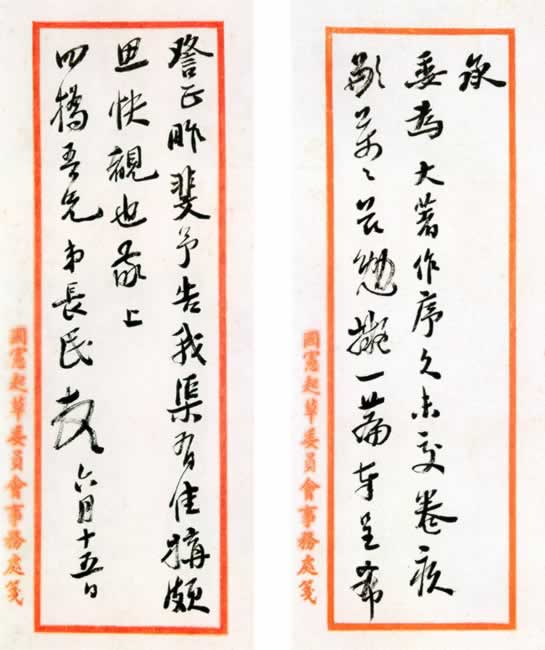 承
委為大著作序久未交卷疚
歉萬々茲勉擬一篇奉呈希
國憲起草委員會事務處箋
詧正昨斐予告我渠有佳搆頗
思快覩也 上
四橋吾兄 弟長民 六月十五日
國憲起草委員會事務處箋